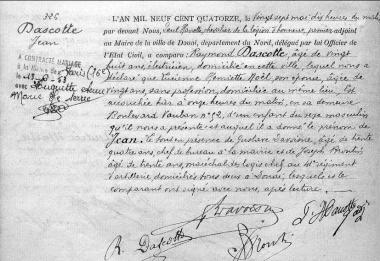 326
Dascotte
Jean
A CONTRACTÉ MARIAGE
à la Mairie de Paris (16e)
le
avec Huguette
Marie
L'AN MIL NEUF CENT QUATORZE, le vingt sept mai dix heures du matin
par devant Nous, chevalier de la légion d'honneur, premier adjoint
au Maire de la ville de Douai, département du Nord, délégué par lui Officier de
l'État Civil, a comparu Raymond Dascotte, âgé de vingt
huit ans, électricien, domicilié en cette ville, lequel nous a
déclaré que Lucienne Henriette Noël, son épouse, âgée de
vingt ans, sans profession, domiciliée au même lieu, est
accouchée hier à onze heures du matin, en sa demeure
Boulevard Vauban n° 92, d'un enfant du sexe masculin
qu'il nous a présenté et auquel il a donné le prénom de
Jean. le tout en présence de Gustave âgé de trente
quatre ans, chef de bureau à la mairie et de Joseph
âgé de trente ans, maréchal des logis chef au régiment
d'artillerie domiciliés tous deux à Douai, lesquels et le
comparant ont signé avec nous, après lecture.
R. Dascotte